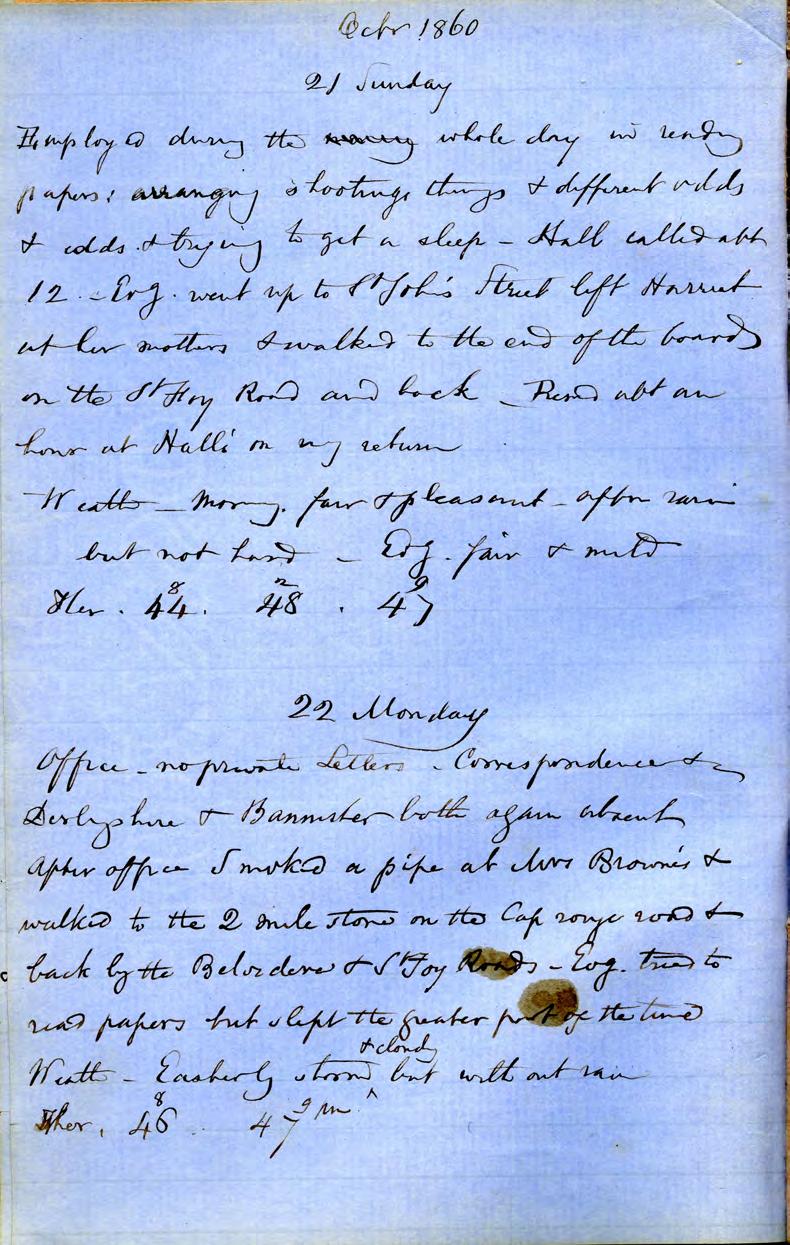 Octr 1860
21 Sunday
Employed during the whole day in reading
papers; arranging shooting things & different odds
& odds & trying to get a sleep – Hall called abt
12 – Evg. went up to St John's Street left Harriet
at her mothers & walked to the end of the boards
on the St Foy Road and back – Read abt an
hour at Hall's on my return
Weath – Morng. fair & pleasant – after rain
but not hard – Evg. fair & mild
Ther. 44 8 . 48 2 . 47 9
22 Monday
Office – no private Letters – Correspondence &c
Derbyshire & Bannister both again absent
After office Smoked a pipe at Mrs Brown's &
walked to the 2 mile stone on the Cap rouge road &
back by the Belvidere & St Foy Roads – Evg. tried to
read papers but slept the greater part of the time
Weath – Easterly storm & cloudy but without rain
Ther. 46 8 .. 47 9 m